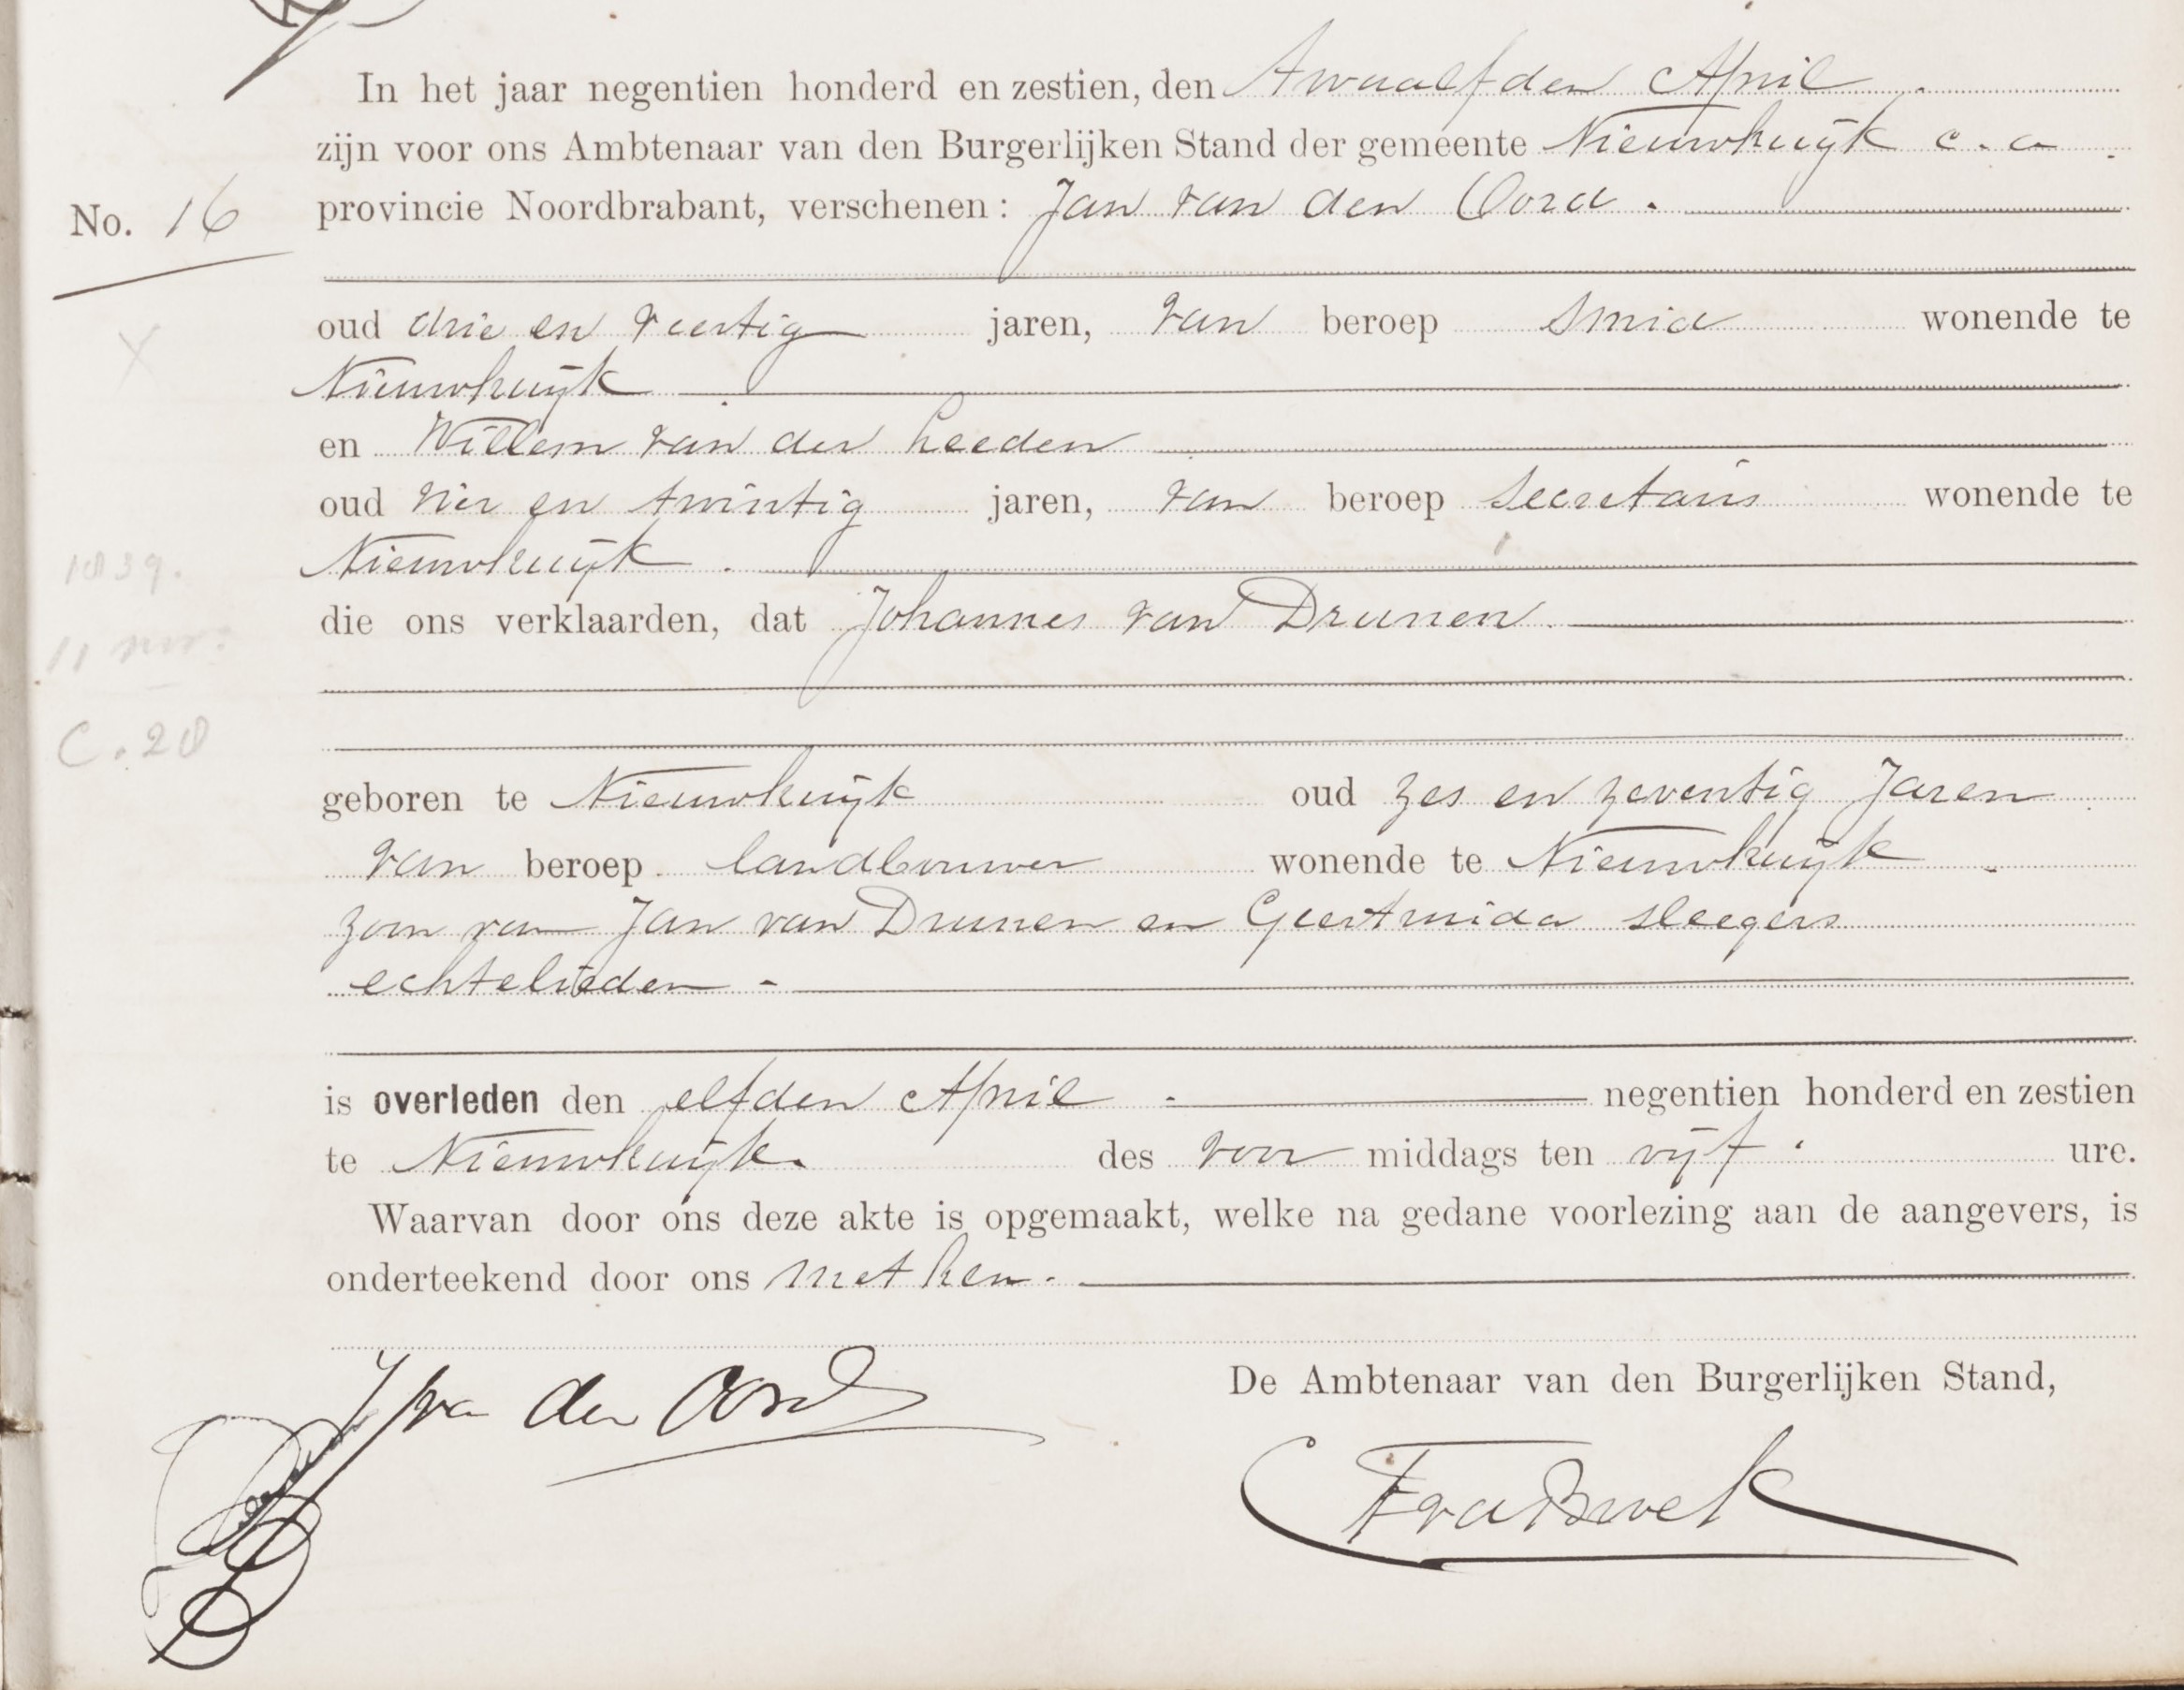 In het jaar negentien honderd en zestien, den twaalfden April
zijn voor ons Ambtenaar van den Burgerlijken Stand der gemeente Nieuwkuijk c.a.
No. 16
provincie Noordbrabant, verschenen: Jan van den Oord.
oud drie en veertig jaren, van beroep smid wonende te
Nieuwkuijk
en Willem van der Heeden
oud vier en twintig jaren, van beroep secretaris wonende te
Nieuwkuijk.
1839.
die ons verklaarden, dat Johannes van Drunen.
11 nov:
C. 20
geboren te Nieuwkuijk oud zes en zeventig Jaren
van beroep landbouwer wonende te Nieuwkuijk
zoon van Jan van Drunen en Geertruida sleegers
echtelieden -
is overleden den elfden April negentien honderd en zestien
te Nieuwkuijk. des voor middags ten vijf ure.
Waarvan door ons deze akte is opgemaakt, welke na gedane voorlezing aan de aangevers, is
onderteekend door ons met hen.
De Ambtenaar van den Burgerlijken Stand,
J va den Oord